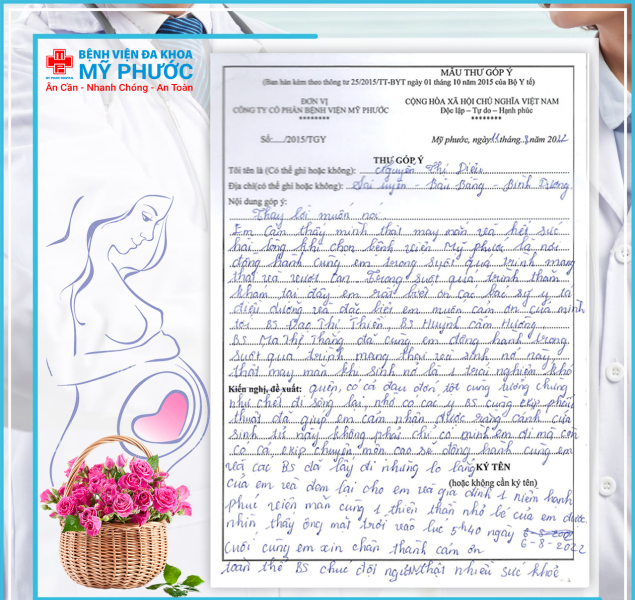 BỆNH VIỆN ĐA KHOA
MỸ PHƯỚC
MY PHUOC HOSPITAL
Ân Cần - Nhanh Chóng - An Toàn
MẪU THƯ GÓP Ý
(Ban hàn kèm theo thông tư 25/2015/TT-BYT ngày 01 tháng 10 năm 2015 của Bộ Y tế)
ĐƠN VỊ
CÔNG TY CỔ PHẦN BỆNH VIỆN MỸ PHƯỚC
********
CỘNG HÒA XÃ HỘI CHỦ NGHĨA VIỆT NAM
Độc lập – Tự do – Hạnh phúc
********
Số:...../2015/TGY
Mỹ phước, ngày 11 tháng 8 năm 2022
THƯ GÓP Ý
Tôi tên là (Có thể ghi hoặc không): Nguyễn Thị Diệu
Địa chỉ(có thể ghi hoặc không): Lai Uyên - Bàu Bàng - Bình Dương
Nội dung góp ý:
Thay lời muốn nói
Em cảm thấy mình thật may mắn và hết sức
hài lòng khi chọn bệnh viện Mỹ phước là nơi
đồng hành cùng em trong suốt quá trình mang
thai và vượt cạn. Trong suốt quá trình thăm
khám tại đây em rất biết ơn các bác sỹ y tá
điều dưỡng và đặc biệt em muốn cảm ơn của mình
tới BS Đào Thị Thiện, BS Huỳnh Cẩm Hường
BS Ma Thế Thắng đã cùng em đồng hành trong
suốt quá trình mang thai và sinh nở này,
thật may mắn khi sinh nở là 1 trải nghiệm khó
Kiến nghị, đề xuất: quên, có cả đau đớn tột cùng tưởng chừng
như chết đi sống lại, nhờ có các y BS cùng ekip phẫu
thuật đã giúp em cảm nhận được rằng cánh cửa
sinh tử này không phải chỉ có mình em đi mà còn
có cả ekip chuyên môn cao sẽ đồng hành cùng em
và các BS đã lấy đi những lo lắng
KÝ TÊN
(hoặc không cần ký tên)
của em và đem lại cho em và gia đình 1 niềm hạnh
phúc viên mãn cùng 1 thiên thần nhỏ bé của em được
nhìn thấy ông mặt trời vào lúc 5h40 ngày
6-8-2022
Cuối cùng em xin chân thành cảm ơn
toàn thể BS chúc đội ngũ thật nhiều sức khỏe